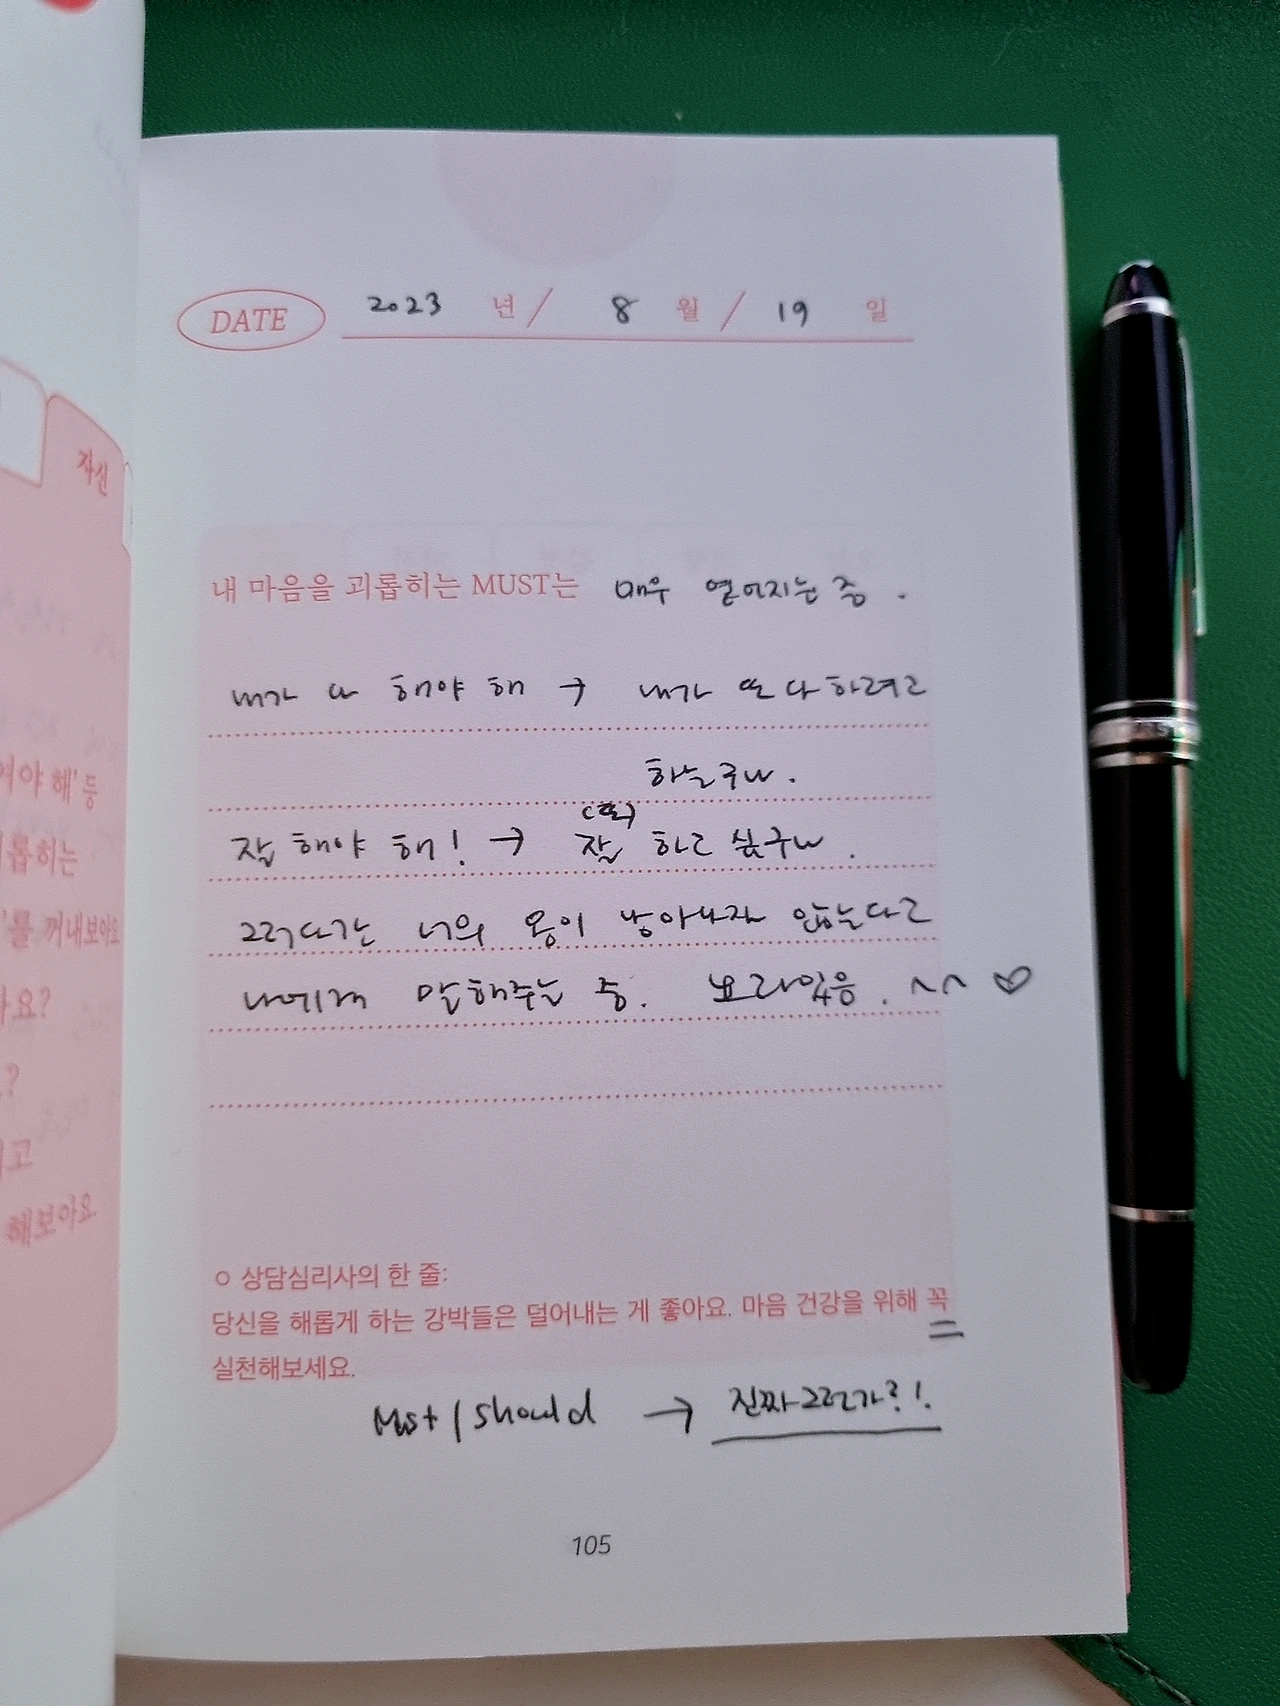 자신
여야 해' 등
롭히는
'를 꺼내보아요
요?
?
고
해보아요.
DATE 2023 년 / 8 월 / 19 일
내 마음을 괴롭히는 MUST는 매우 옅어지는 중.
내가 다 해야 해 → 내가 또 다 하려고
하는구나.
(또)
잘 해야 해! → 잘 하고 싶구나.
그러다가는 너의 몸이 남아나지 않는다고
나에게 말해주는 중. 효과있음. ^^ ♡
○ 상담심리사의 한 줄:
당신을 해롭게 하는 강박들은 덜어내는 게 좋아요. 마음 건강을 위해 꼭
실천해보세요.
Mst / should → 진짜 그런가?!
105